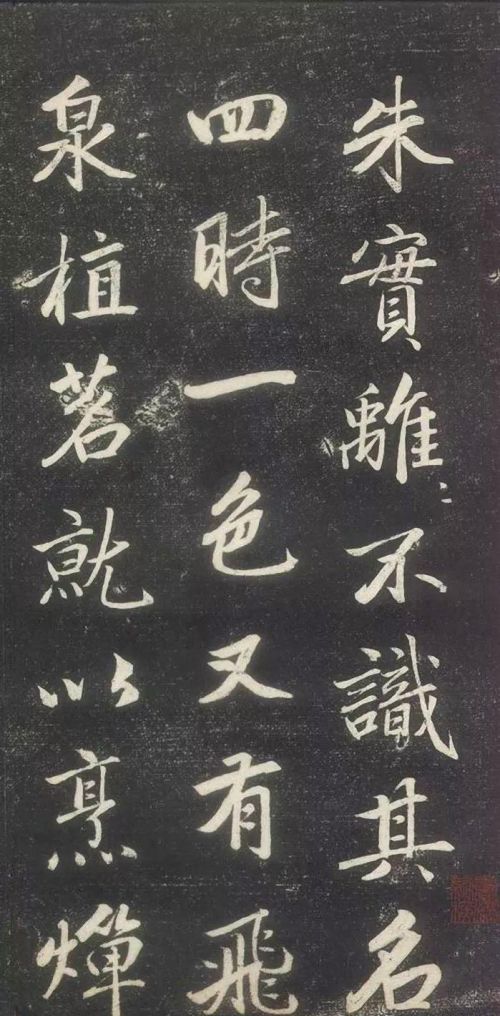 朱實離〻不識其名
四時一色又有飛
泉植茗就以烹燀